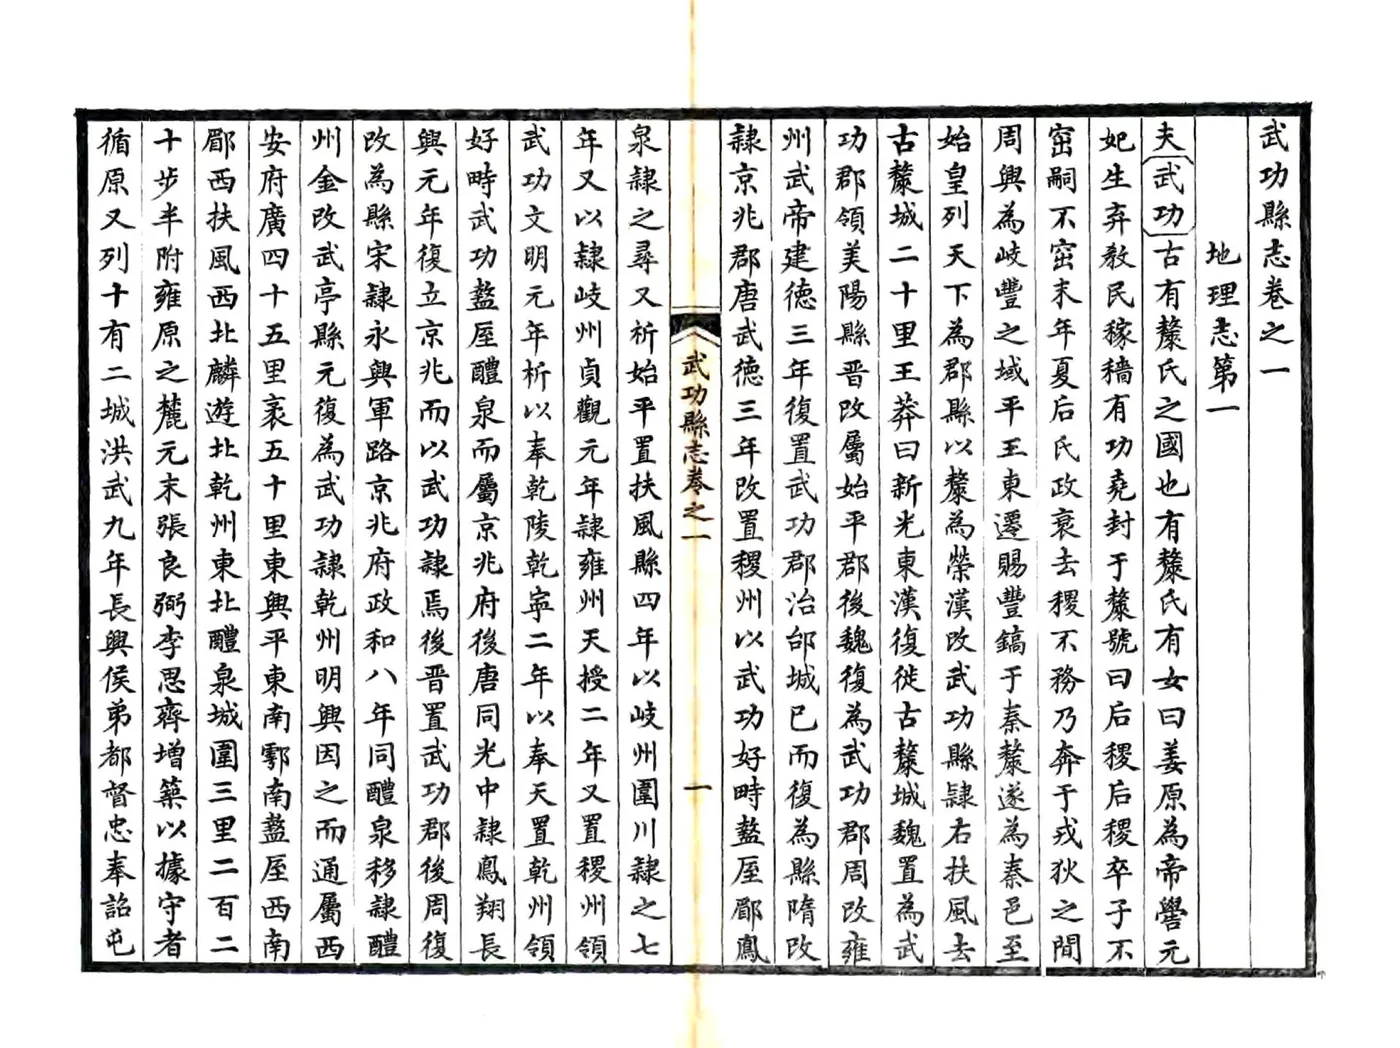 武功縣志卷之一
地理志第一
夫武功古有斄氏之國也有斄氏有女曰姜原為帝嚳元
妃生弃教民稼穡有功堯封于斄號曰后稷后稷卒子不
窋嗣不窋末年夏后氏政衰去稷不務乃奔于戎狄之間
周興為岐豐之域平王東遷賜豐鎬于秦斄遂為秦邑至
始皇列天下為郡縣以斄為縈漢改武功縣隷右扶風去
古斄城二十里王莽曰新光東漢復徙古斄城魏置為武
功郡領美陽縣晉改屬始平郡後魏復為武功郡周改雍
州武帝建德三年復置武功郡治邰城已而復為縣隋改
隷京兆郡唐武德三年改置稷州以武功好畤盩厔郿鳳
武功縣志卷之一
一
泉隷之尋又析始平置扶風縣四年以岐州圍川隷之七
年又以隷岐州貞觀元年隷雍州天授二年又置稷州領
武功文明元年析以奉乾陵乾寧二年以奉天置乾州領
好畤武功盩厔醴泉而屬京兆府後唐同光中隷鳳翔長
興元年復立京兆而以武功隷焉後晉置武功郡後周復
改為縣宋隷永興軍路京兆府政和八年同醴泉移隷醴
州金改武亭縣元復為武功隷乾州明興因之而通屬西
安府廣四十五里袤五十里東興平東南鄠南盩厔西南
郿西扶風西北麟遊北乾州東北醴泉城圍三里二百二
十步半附雍原之麓元末張良弼李思齊增築以據守者
循原又列十有二城洪武九年長興侯弟都督忠奉詔屯